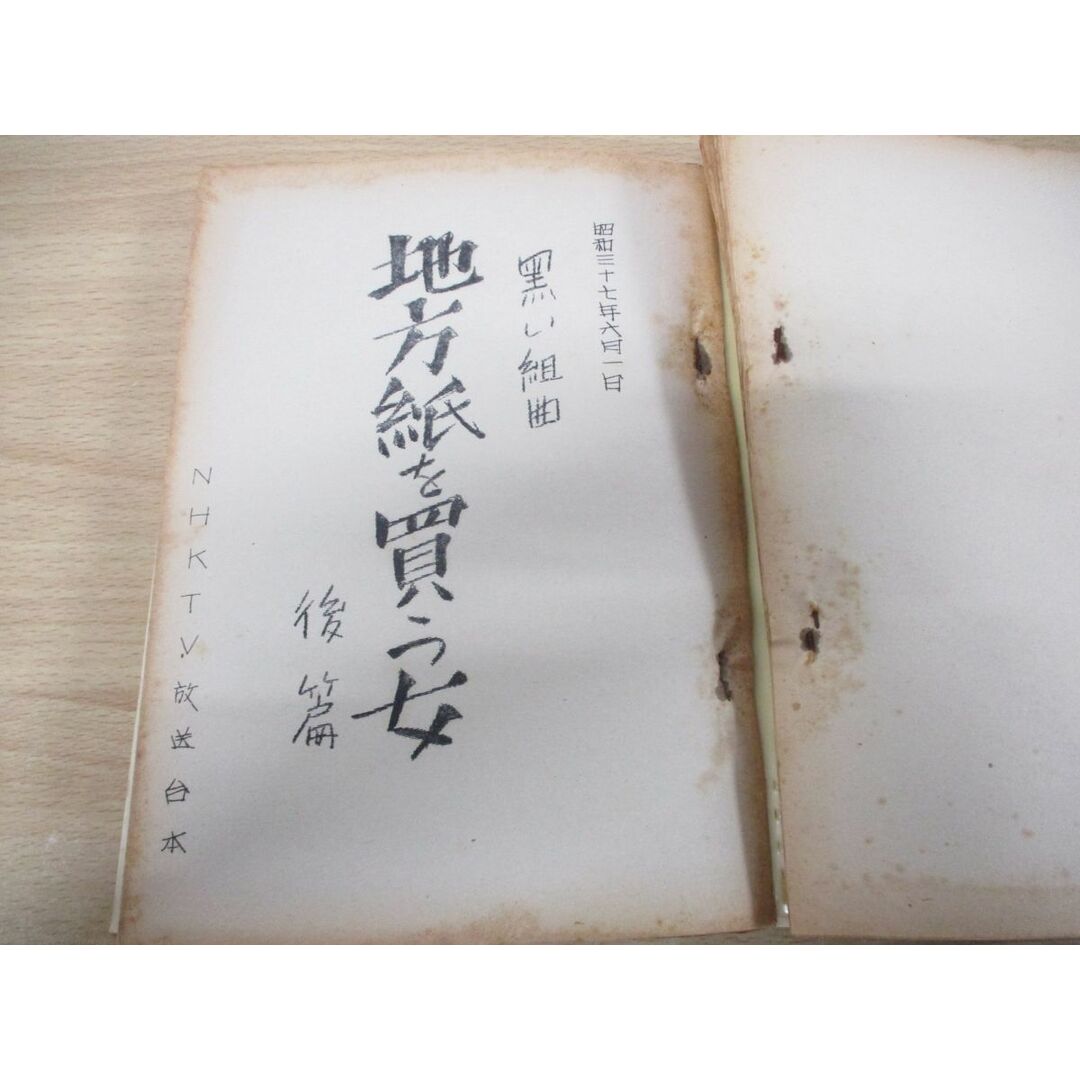 昭和三十七年六月一日
黒い組曲
地方紙を買う女
後篇
NHKTV.放送台本